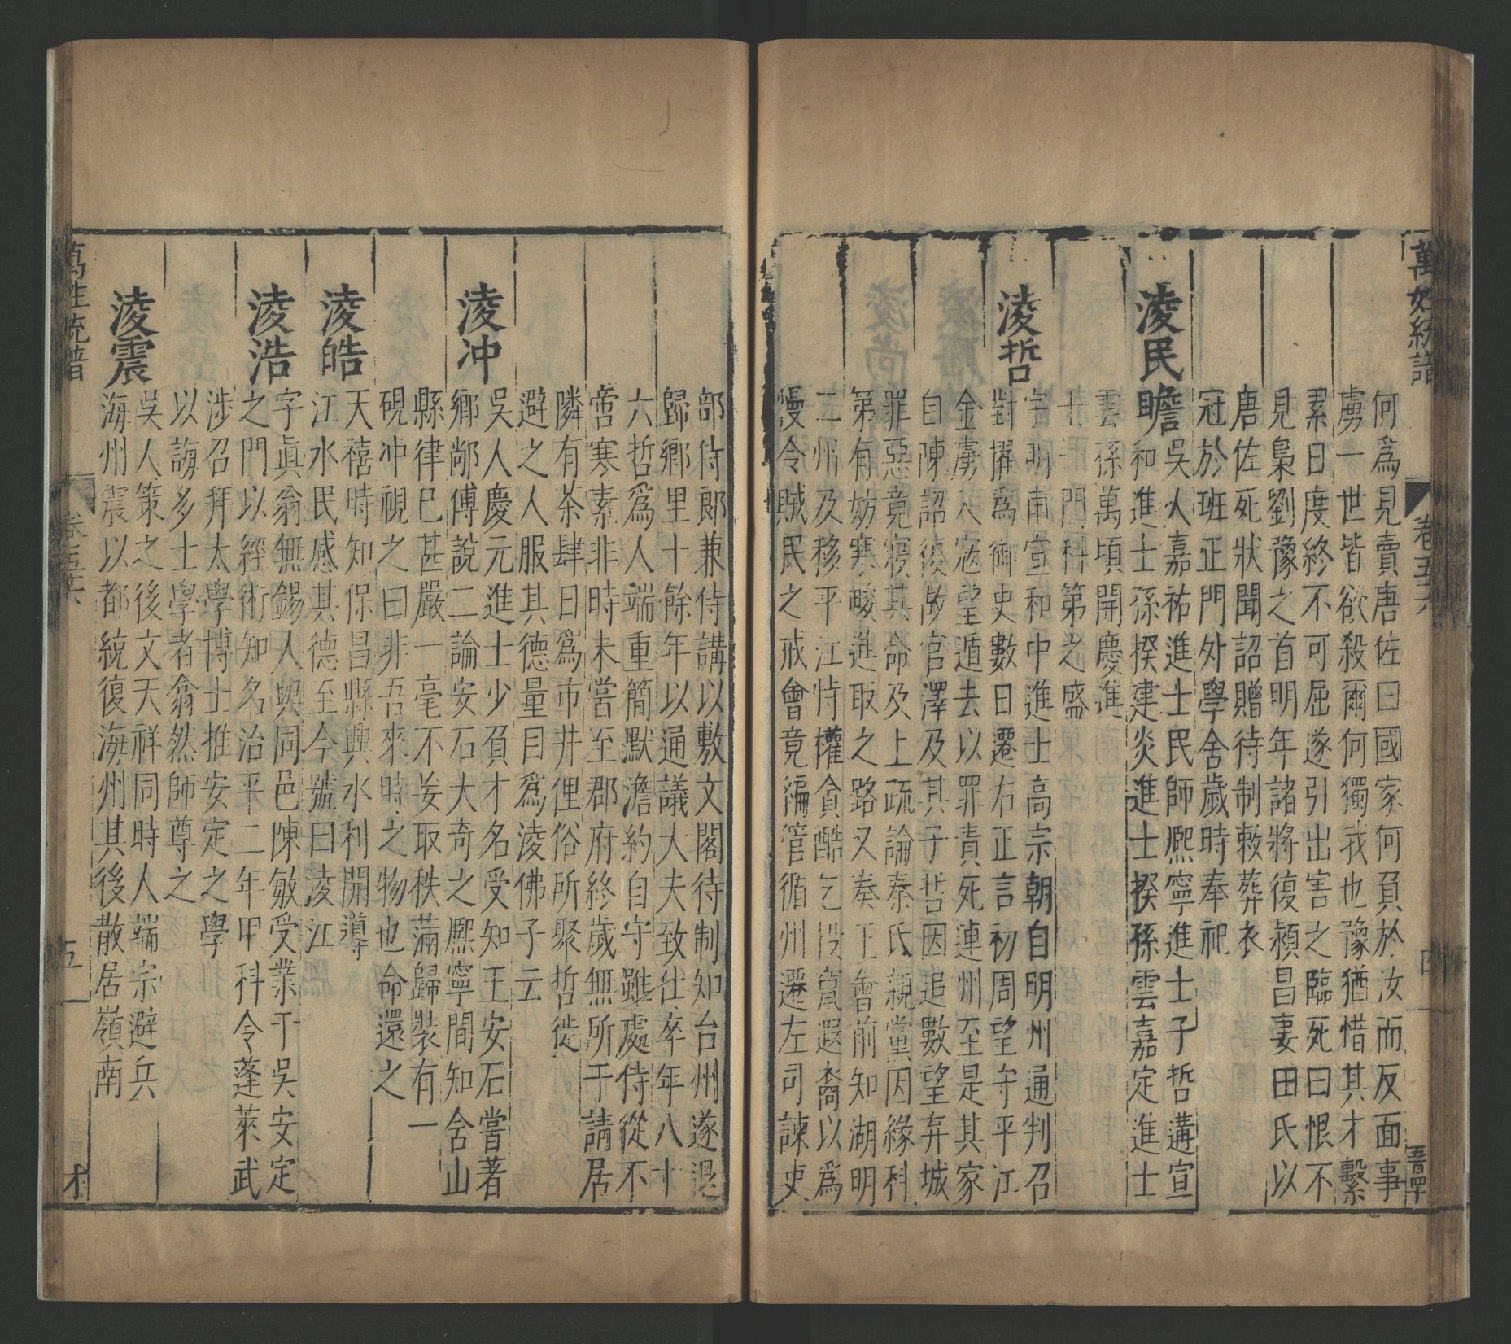 萬姓統譜
卷五十六
四
何爲見賣唐佐曰國家何負於汝而反面事
虜一世皆欲殺爾何獨我也豫猶惜其才繫
累日度終不可屈遂引出害之臨死曰恨不
見梟劉豫之首明年諸將復潁昌妻田氏以
唐佐死狀聞詔贈待制敕葬衣
冠於班正門外學舍歲時奉祀
淩民瞻 吳人嘉祐進士民師熈寧進士子哲遘宣
和進士孫揆建炎進士揆孫雲嘉定進士
雲孫萬頃開慶進
士一門科第之盛
淩哲 字明甫宣和中進士高宗朝自明州通判召
對擢爲御史數日遷右正言初周望守平江
金虜入寇望遁去以罪責死連州至是其家
自陳詔復故官澤及其子哲因追數望弃城
罪惡竟寢其命及上疏論秦氏親黨因緣科
第有妨寒畯進取之路又奏王會前知湖明
二州及移平江恃權貪酷乞投竄遐裔以爲
慢令賊民之戒會竟徧管循州遷左司諫吏
部侍郎兼侍講以敷文閣待制知台州遂退
歸鄉里十餘年以通議大夫致仕卒年八十
六哲爲人端重簡默澹約自守雖處侍從不
啻寒素非時未嘗至郡府終歲無所干請居
隣有茶肆日爲市井俚俗所聚哲徙
避之人服其德量目爲淩佛子云
淩冲 吳人慶元進士少負才名受知王安石嘗著
鄉鄙傅說二論安石大奇之熈寧間知含山
縣律已甚嚴一毫不妄取秩滿歸裝有一
硯冲視之曰非吾來時之物也命還之
淩皓 天禧時知保昌縣興水利開導
江水民感其德至今號曰淩江
淩浩 字眞翁無錫人與同邑陳敏受業于吳安定
之門以經術知名治平二年甲科令蓬萊武
涉召拜太學博士推安定之學
以誨多士學者翕然師尊之
淩震 吳人策之後文天祥同時人端宗避兵
海州震以都統復海州其後散居嶺南
萬姓統譜
卷五十六
五